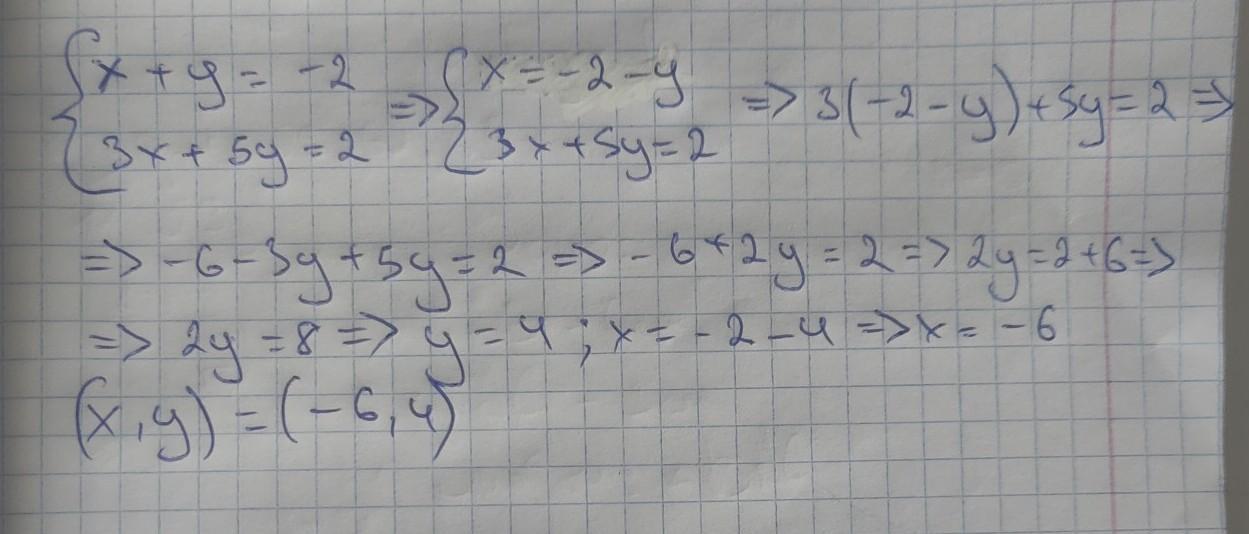 {x + y = -2 => {x = -2 - y => 3(-2 - y) + 5y = 2 =>
{3x + 5y = 2 {3x + 5y = 2
=> -6 - 3y + 5y = 2 => -6 + 2y = 2 => 2y = 2 + 6 =>
=> 2y = 8 => y = 4 ; x = -2 - 4 => x = -6
(x, y) = (-6, 4)